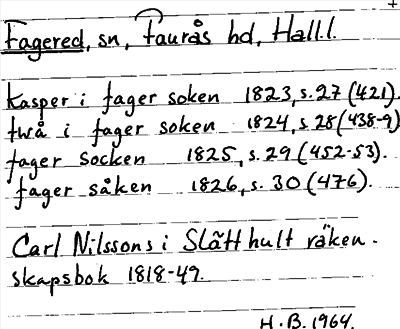 Fagered, sn, Faurås hd, Hall.
Kasper i fager soken 1823, s. 27 (421).
twå i fager soken 1824, s. 28 (438-9)
fager Socken 1825, s. 29 (452-53).
fager såken 1826, s. 30 (476).
Carl Nilssons i Slätthult räken-
skapsbok 1818-49.
H.B. 1964.